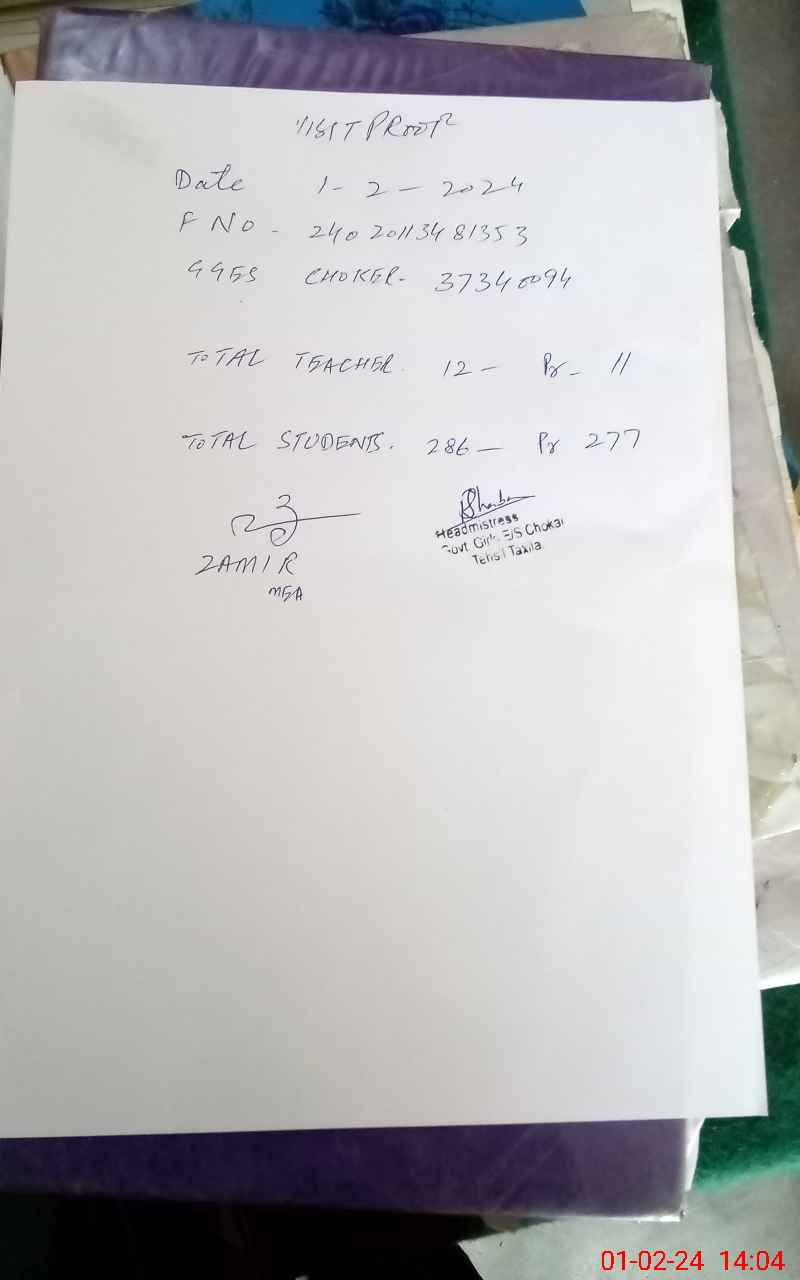 VISIT PROOF
Date 1 - 2 - 2024
F NO - 2402011348 1353
GGES CHOKER - 37340094
TOTAL TEACHER. 12 - Pr - 11
TOTAL STUDENTS. 286 - Pr 277
Headmistress
Govt Girls E/S Chokar
Tehsil Taxila
ZAMIR
MEA
01-02-24 14:04